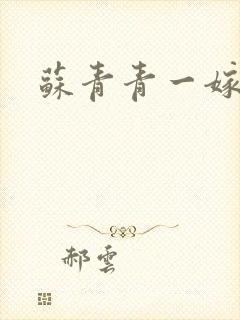 蘇青青一嫁
郝雲